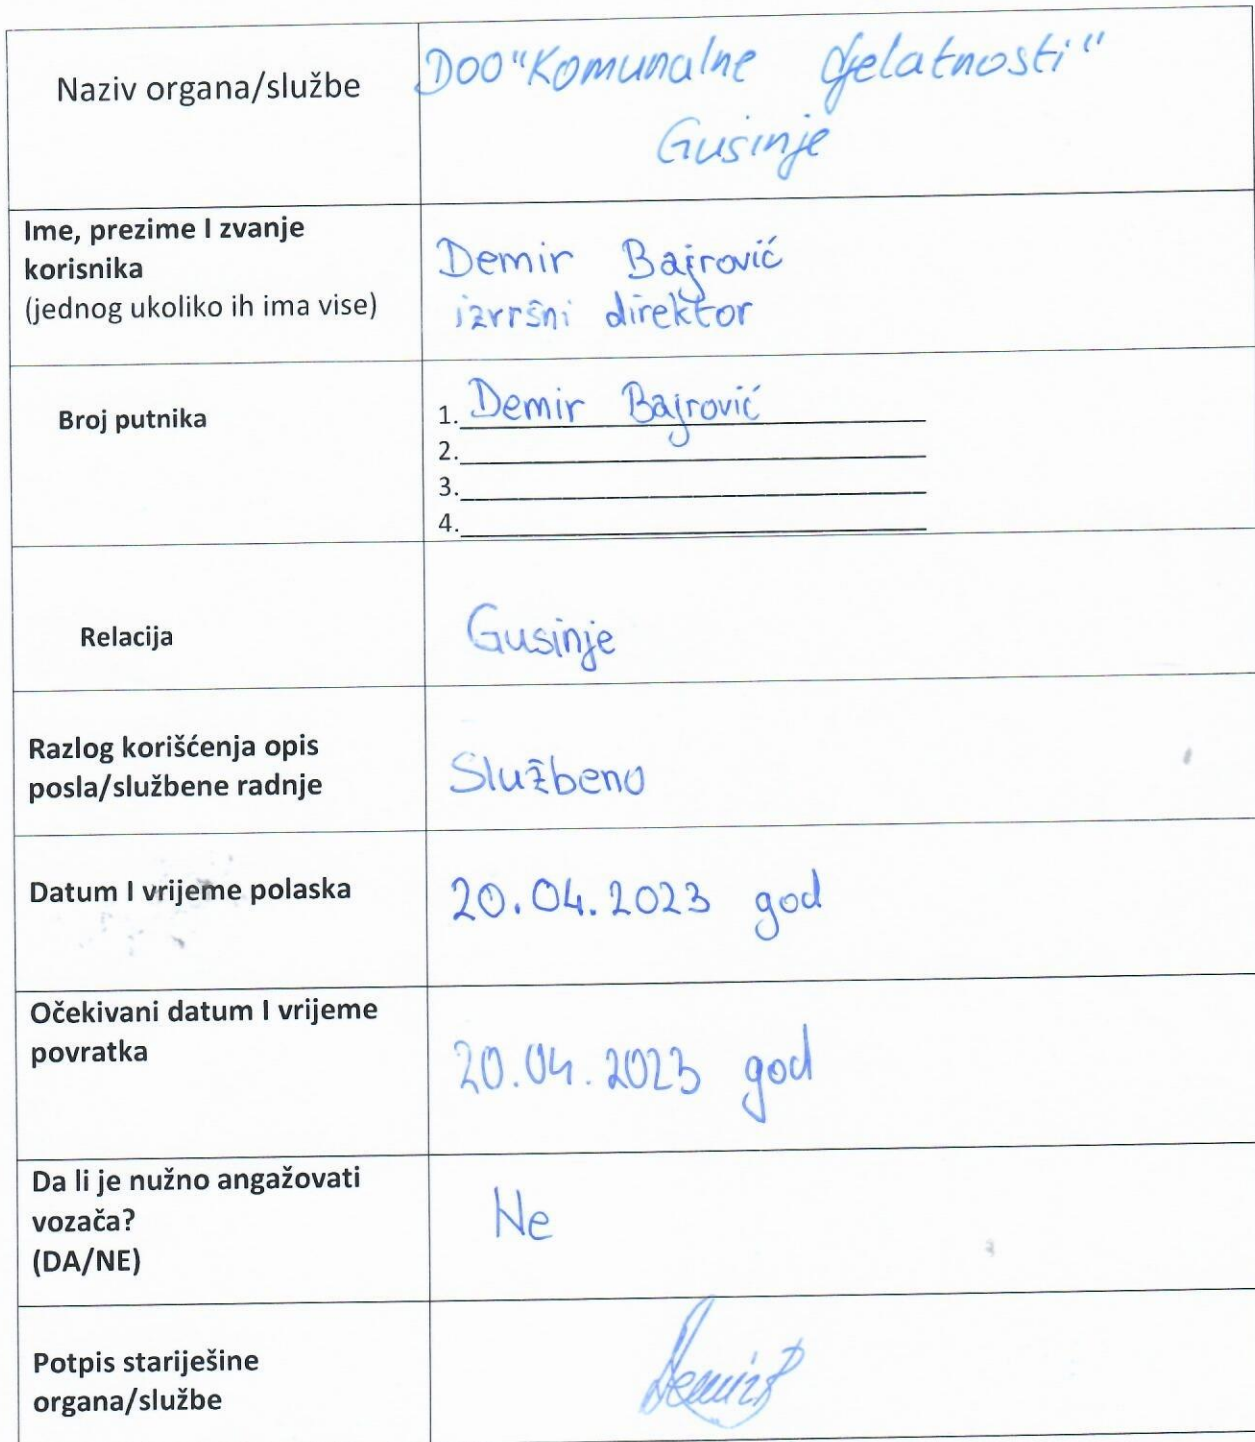 Naziv organa/službe
DOO "Komunalne djelatnosti"
Gusinje
Ime, prezime I zvanje
korisnika
(jednog ukoliko ih ima vise)
Demir Bajrović
izvršni direktor
Broj putnika
1. Demir Bajrović
2.
3.
4.
Relacija
Gusinje
Razlog korišćenja opis
posla/službene radnje
Službeno
Datum I vrijeme polaska
20.04.2023 god
Očekivani datum I vrijeme
povratka
20.04.2023 god
Da li je nužno angažovati
vozača?
(DA/NE)
Ne
Potpis starješine
organa/službe
DemirB